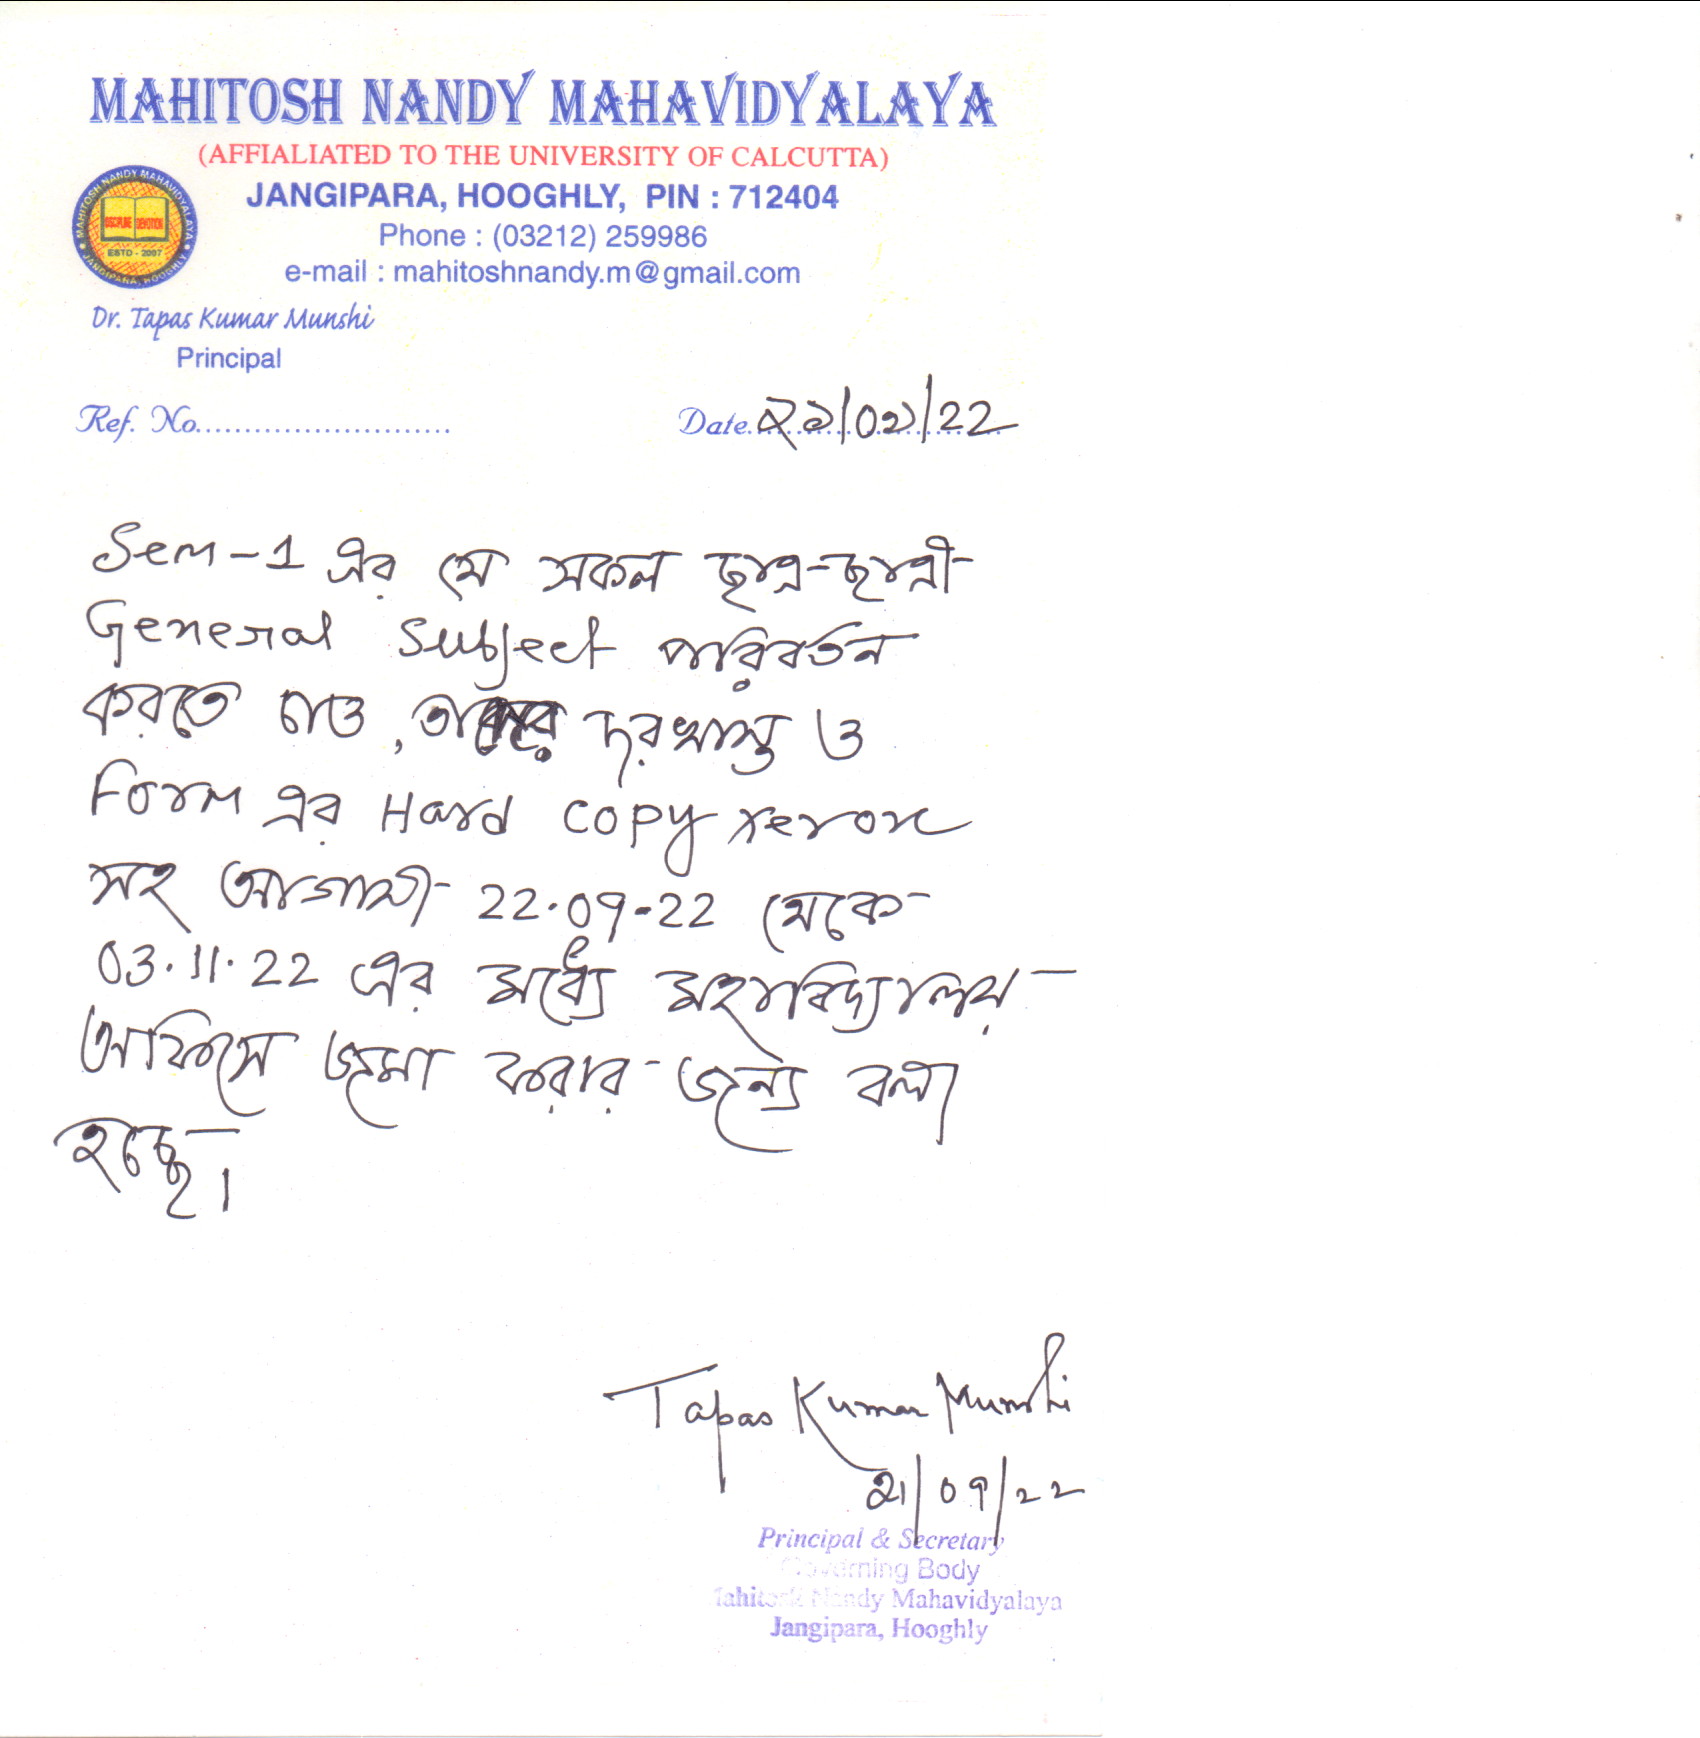 MAHITOSH NANDY MAHAVIDYALAYA
(AFFIALIATED TO THE UNIVERSITY OF CALCUTTA)
JANGIPARA, HOOGHLY, PIN : 712404
Phone : (03212) 259986
e-mail : mahitoshnandy.m@gmail.com
MAHITOSH NANDY MAHAVIDYALAYA
DISCIPLINE DEVOTION
ESTD - 2007
JANGIPARA, HOOGHLY
Dr. Tapas Kumar Munshi
Principal
Ref. No..........................
Date. ২১/০৯/22
Sem-1 এর যে সকল ছাত্র-ছাত্রী
General Subject পরিবর্তন
করতে চাও, দরখাস্ত ও
Form এর Hard copy xerox
সহ আগামী 22.09-22 থেকে
03.11.22 এর মধ্যে মহাবিদ্যালয়
অফিসে জমা করার জন্য বলা
হচ্ছে।
Tapas Kumar Munshi
21/09/22
Principal & Secretary
Governing Body
Mahitosh Nandy Mahavidyalaya
Jangipara, Hooghly